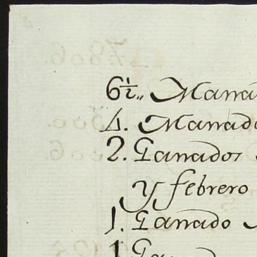 6½.. Mana
4. Manado
2. Ganados
y febrero
1. Ganado
1 Ga